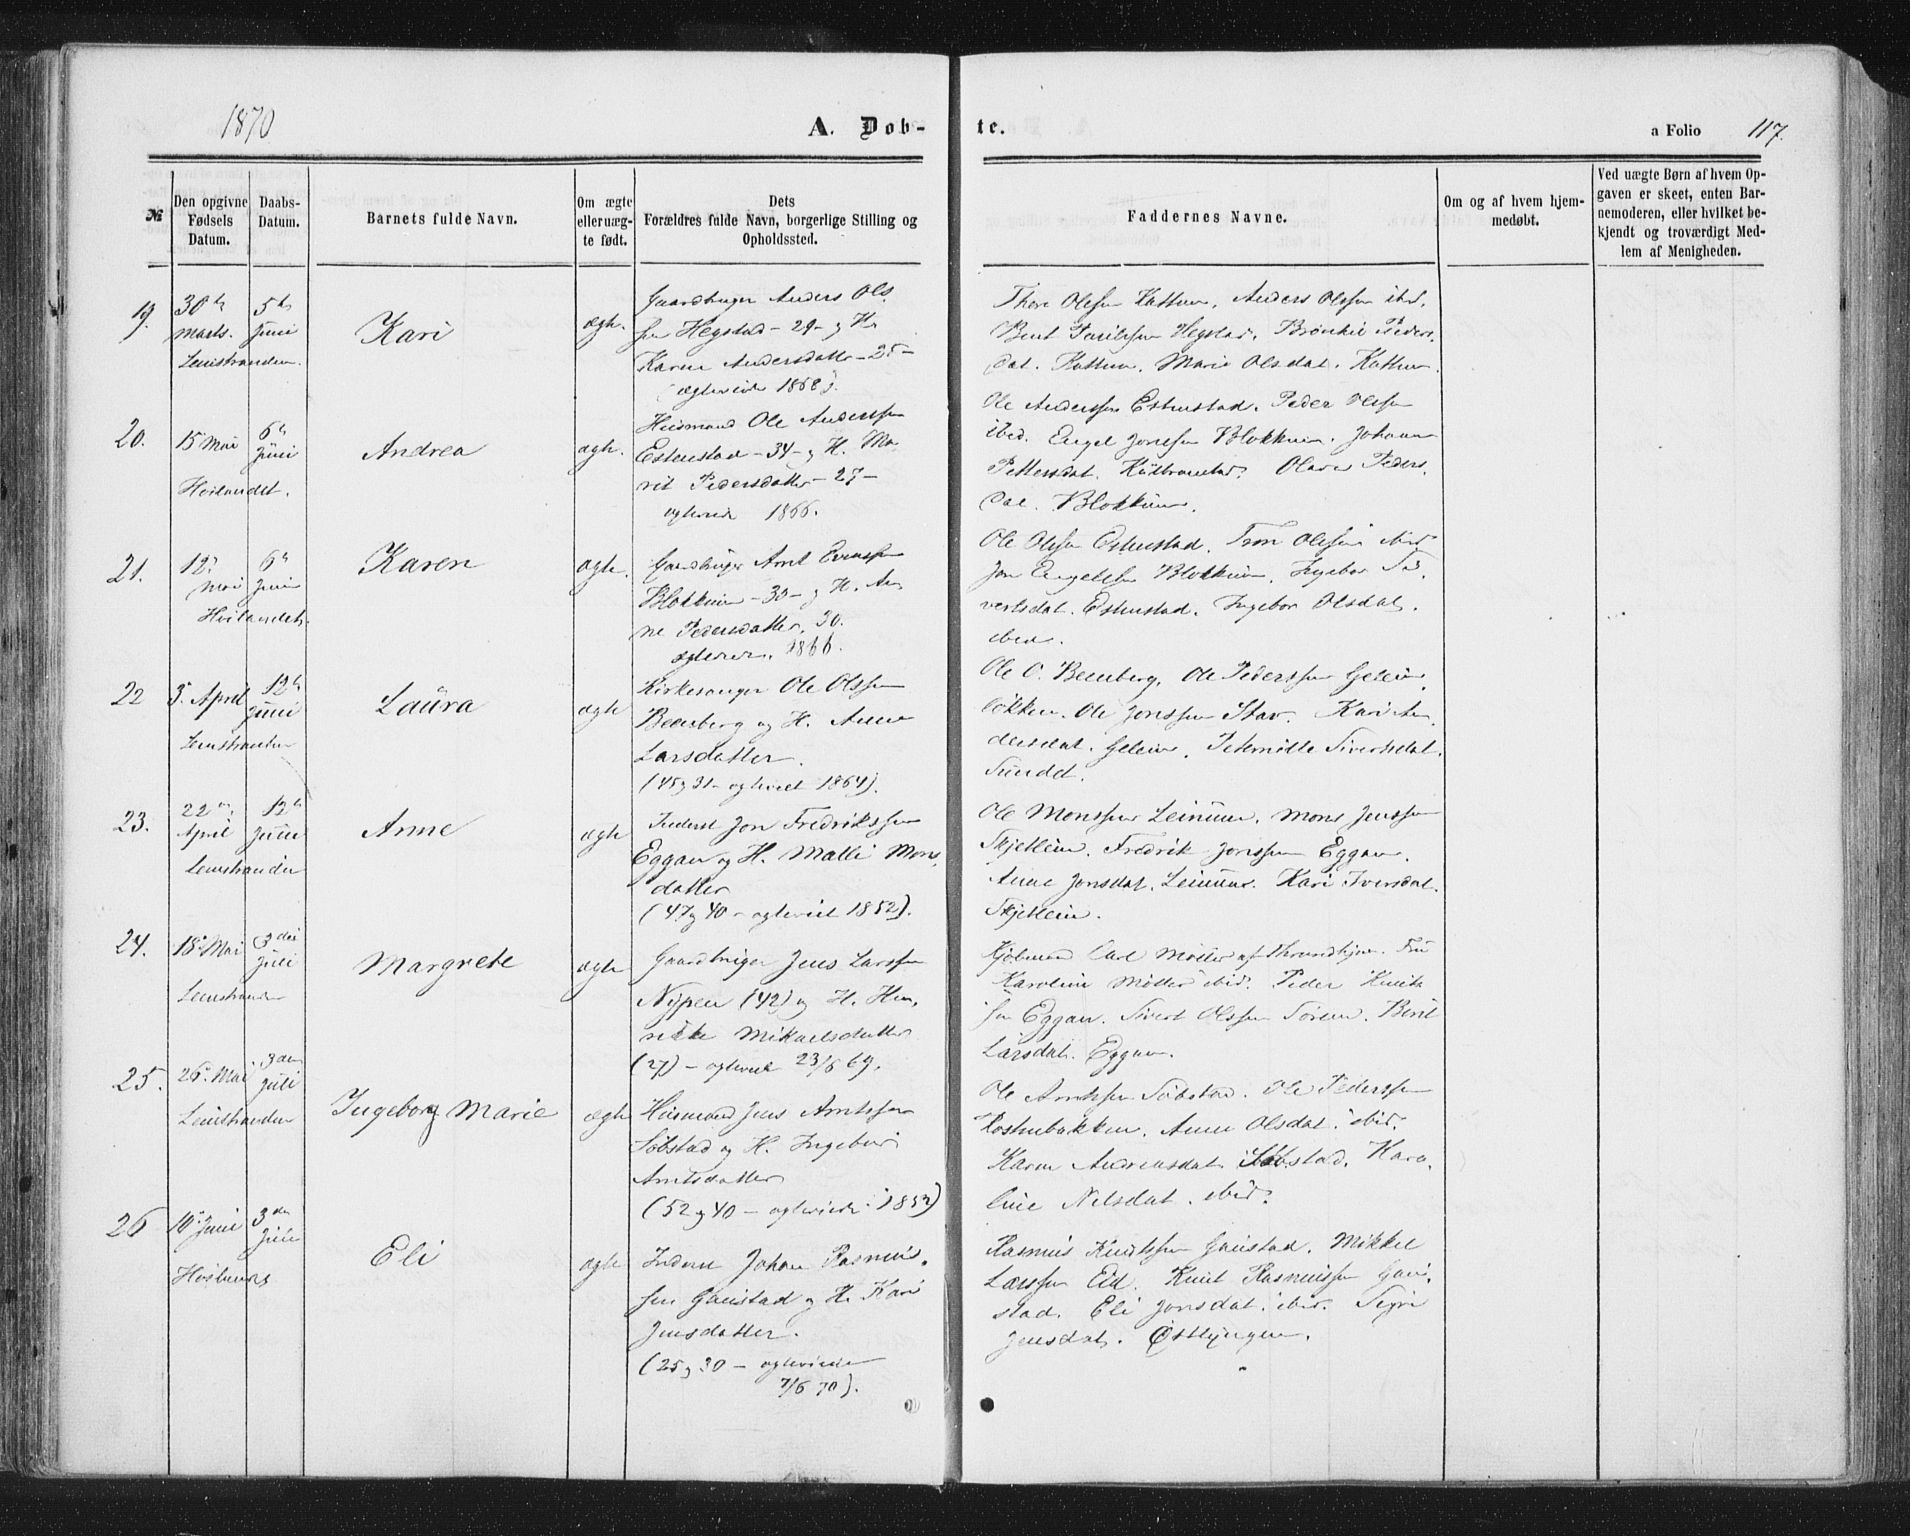 1870
A. Døb-
te.
a Folio 117.
№
Den opgivne Fødsels Datum.
Daabs-Datum.
Barnets fulde Navn.
Om ægte eller uægte født.
Dets Forældres fulde Navn, borgerlige Stilling og Opholdssted.
Faddernes Navne.
Om og af hvem hjemmedøbt.
Ved uægte Børn af hvem Opgaven er skeet, enten Barnemoderen, eller hvilket bekjendt og troværdigt Medlem af Menigheden.
19.
30te Marts.
Leinstranden.
5te Juni
Kari
ægte.
Gaardbruger Anders Ols
sen Hegstad - 29 - og H.
Karen Andersdatter - 25 -
(ægteviede 1868).
Olsen Kattum, Anders Olssen ibid.
Bent Hegstad, Peders
dat. Kattum. Marie Olsdat. Kattum.
20.
15 Mai
Høilandet.
6te Juni
Andrea
ægte.
Husmand Ole Anderssen
Estenstad - 34 - og H. Ma
rit Pedersdatter - 27 -
ægteviede 1866.
Ole Anderssen Estenstad. Peder Olssen
ibid. Engel Jonssen Blokkum. Johanna
Pettersdat. Olava Peders
dat. Blokkum.
21.
12te Mai
Høilandet.
6te Juni
Karen
ægte.
Gaardbruger Arnt Evenssen
Blokkum - 30 - og H. An
ne Pedersdatter, 30.
ægteviede 1866.
Ole Olssen Estenstad. Tron Olssen ibid
Jon Engelssen Blokkum. Ingebor Si
vertsdat. Estenstad. Ingebor Olsdat.
ibid.
22
3 April
Leinstranden
12te Juni
Laura
ægte
Kirkesanger Ole Olssen
Berg og H. Anne
Larsdatter.
(45 og 31 - ægteviet 1864).
Ole O. Ole Pederssen Gelein
løkken. Ole Jonssen Stav. Kari An
dersdat. Gelein. Sivertsdat.
Sundet.
23.
22de April
Leinstranden
12te Juni
Anne
ægte
Inderst Jon Fredrikssen
Eggan og H. Malli Mons
datter
(47 og 40 - ægteviet 1852).
Ole Monssen Leinum. Mons Jenssen
Skjetlein. Fredrik Jonssen Eggan.
Anne Jonsdat. Leinum. Kari Iversdat.
Skjetlein.
24.
18 Mai
Leinstranden
3die Juli
Margrete
ægte
Gaardbruger Jens Larssen
Nypen (42) og H. Hen
rikke Mikaelsdatter
(27) - ægteviet 23/6 69.
Kjøbmand Carl Møller af Throndhjem. Fru
Karoline Møller ibid. Peder Knuts
sen Eggan. Sivert Olssen Berit
Larsdat. Eggan.
25.
26 Mai
Leinstranden
3die Juli
Ingeborg Marie
ægte
Husmand Jens Arntssen
Søbstad og H. Ingebor
Arntsdatter
(52 og 40 - ægteviede 1853)
Ole Arntssen Søbstad. Ole Pederssen
Anne Olsdat. ibid.
Karen Andreasdat. Søbstad. Karo
line Nilsdat. ibid.
26
10 Juni
3die Juli
Eli
ægte
Inderst Johan Rasmus
sen Gaustad og H. Kari
Jensdatter.
(25 og 30 - ægteviede
7/6 70).
Rasmus Knutssen Gaustad. Mikkel
Larssen Eid. Knut Rasmussen Gau
stad. Eli Jonsdat. ibid. Sigri
Jensdat. Østlyngen.